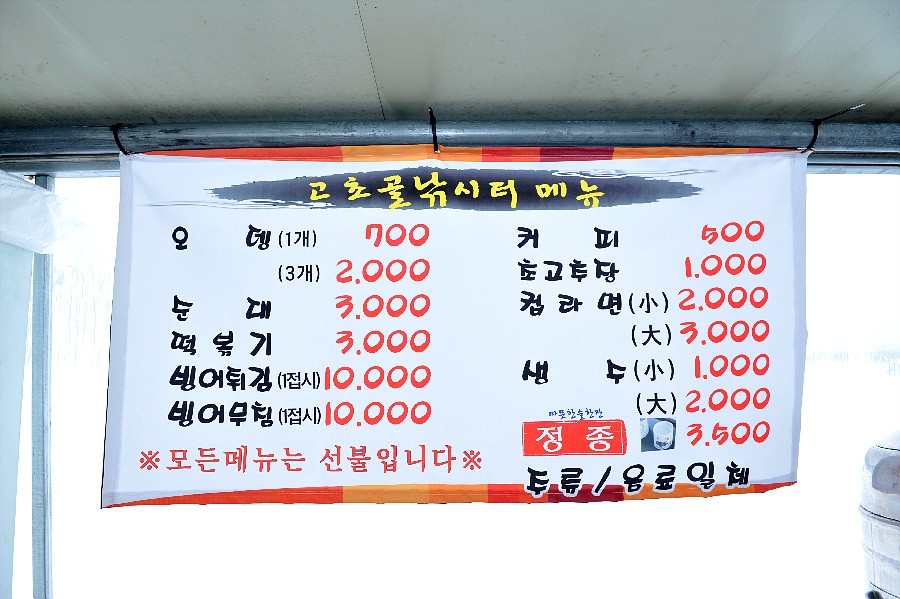 고초골낚시터 메뉴
오 뎅 (1개) 700
(3개) 2.000
순 대 3.000
떡 볶 기 3.000
빙어튀김 (1접시) 10.000
빙어무침 (1접시) 10.000
※모든메뉴는 선불입니다※
커 피 500
초고추장 1.000
컵 라 면 (小) 2.000
(大) 3.000
생 수 (小) 1.000
(大) 2.000
따뜻한술한잔
정 종 3.500
주류/음료일체